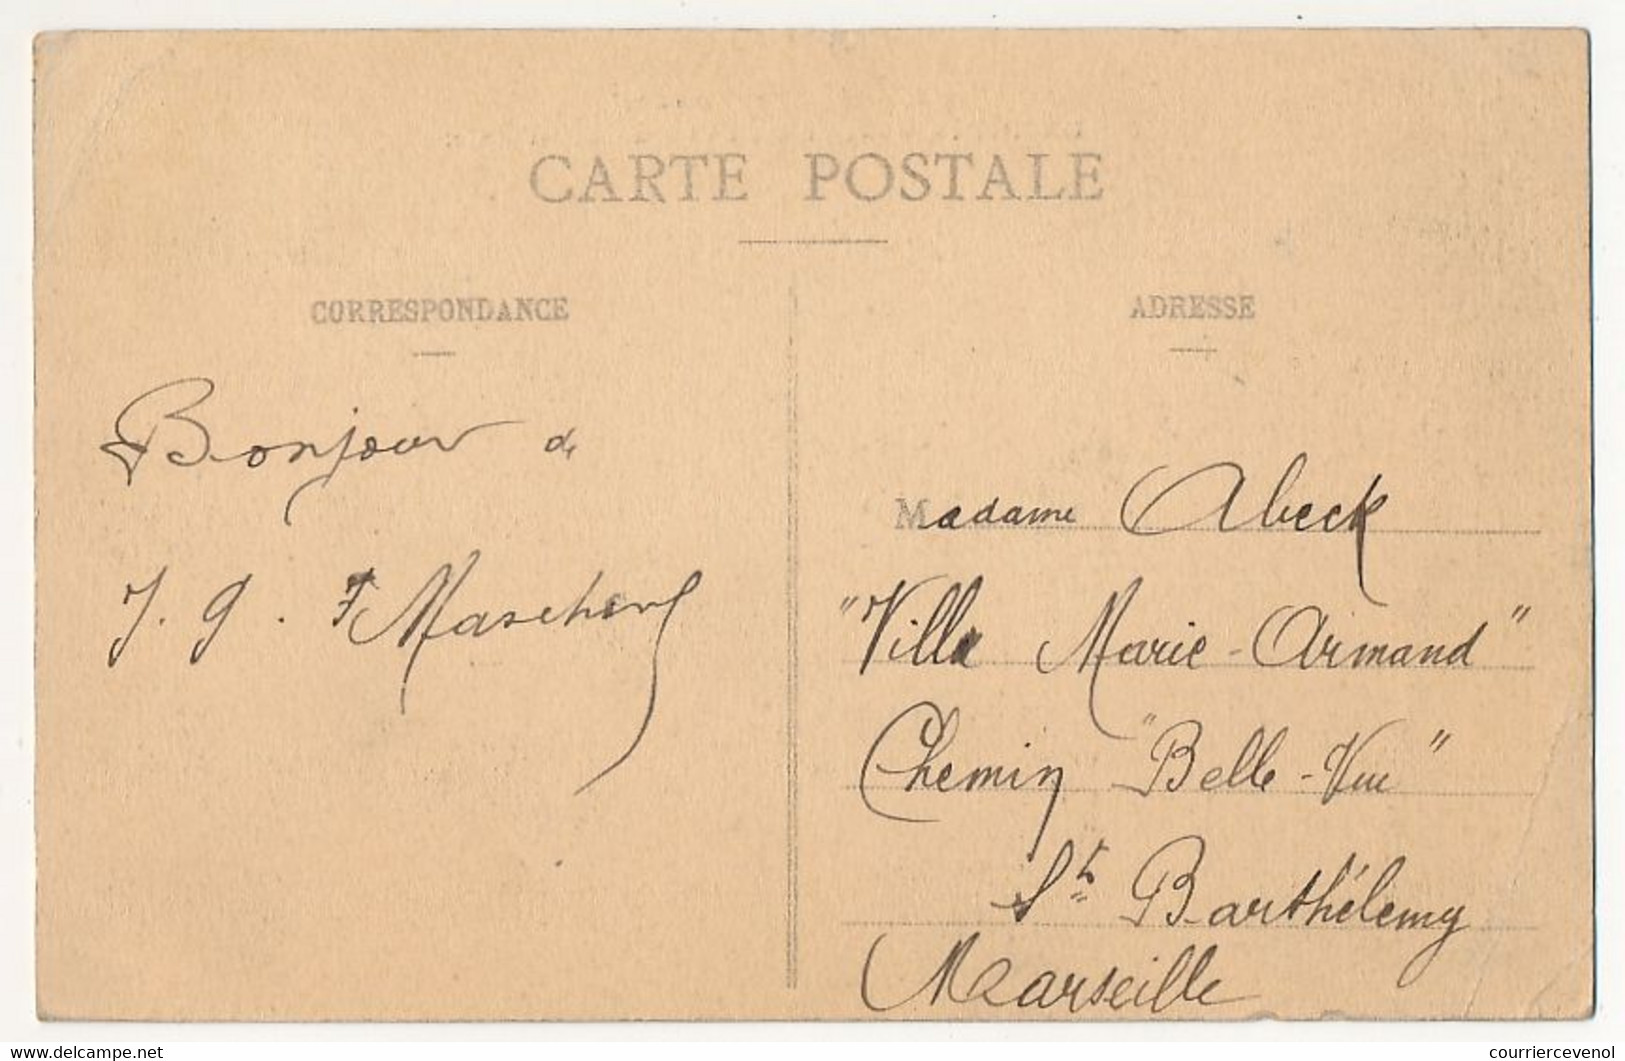 CARTE POSTALE
CORRESPONDANCE
Bonjour de
J. G. F Mascherf
ADRESSE
Madame Abeck
"Villa Marie-Armand"
Chemin "Belle-Vue"
St Barthélemy
Marseille
delcampe.net
courriercevenol